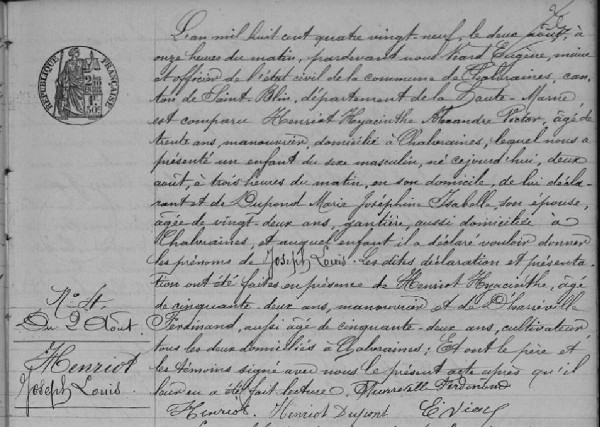 L'an mil huit cent quatre vingt-neuf, le deux août, à
onze heures du matin, pardevant nous Viard Eugène, maire
et officier de l'état civil de la commune de Chalvraines, can-
ton de Saint-Blin, département de la Haute-Marne
est comparu Henriot Hyacinthe Alexandre Victor, âgé de
trente ans, manouvrier, domicilié à Chalvraines, lequel nous a
présenté un enfant du sexe masculin, né cejourd'hui, deux
août, à trois heures du matin, en son domicile, de lui décla-
rant et de Dupond Marie Joséphine Isabelle, son épouse,
âgée de vingt-deux ans, gantière, aussi domiciliée à
Chalvraines, et auquel enfant il a déclaré vouloir donner
les prénoms de Joseph Louis. Les dites déclaration et présenta-
tion ont été faites en présence de Henriot Hyacinthe, âgé
de cinquante-deux ans, manouvrier et de
Ferdinand, aussi âgé de cinquante-deux ans, cultivateur,
tous les deux domiciliés à Chalvraines; Et ont le père et
les témoins signé avec nous le présent acte après qu'il
leur en a été fait lecture. Ferdinand
Henriot. Henriot Dupont E Viard
RÉPUBLIQUE FRANÇAISE
N° 4
Du 2 Août.
Henriot
Joseph Louis.